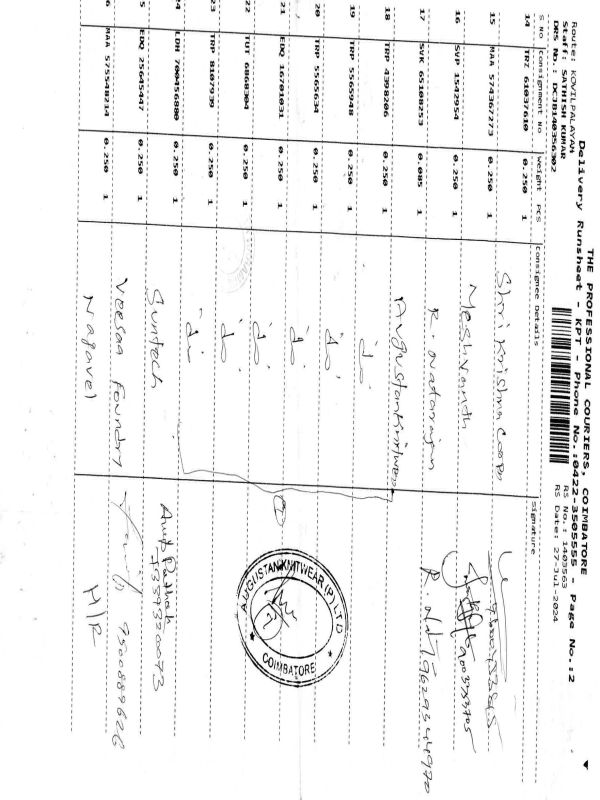 THE PROFESSIONAL COURIERS, COIMBATORE
Delivery Runsheet - KPT - Phone No.:0422-3505555 - Page No.:2
Route: KOVILPALAYAM
RS No.: 1403563
Staff: SATHISH KUMAR
RS Date: 27 Jul 2024
DRS No.: DCJB140356302
S No Consignment No Weight PCS Consignee Details Signature
14 TRZ 61037610 0.250 1 Shri Krishna Coops
15 MAA 574367273 0.250 1 Meshvandh
16 SVP 1542954 0.250 1 R. Natarajan R. Nat 9629344970
17 SVK 65108253 0.085 1 Augustan Knitwear
18 TRP 4398206 0.250 1 "do"
19 TRP 5565948 0.250 1 "do"
20 TRP 5565634 0.250 1 "do"
21 EDQ 16701031 0.250 1 "do"
22 TUT 6868304 0.250 1 "do"
23 TRP 8107939 0.250 1 "do"
24 LDH 700456880 0.250 1 Suntech Anup Pathak
5 EDQ 25645447 0.250 1 Veesaa Foundry 9500889626
6 MAA 575548214 0.250 1 Nagavel H/R
AUGUSTAN KNITWEAR (P) LTD
★ COIMBATORE ★
7